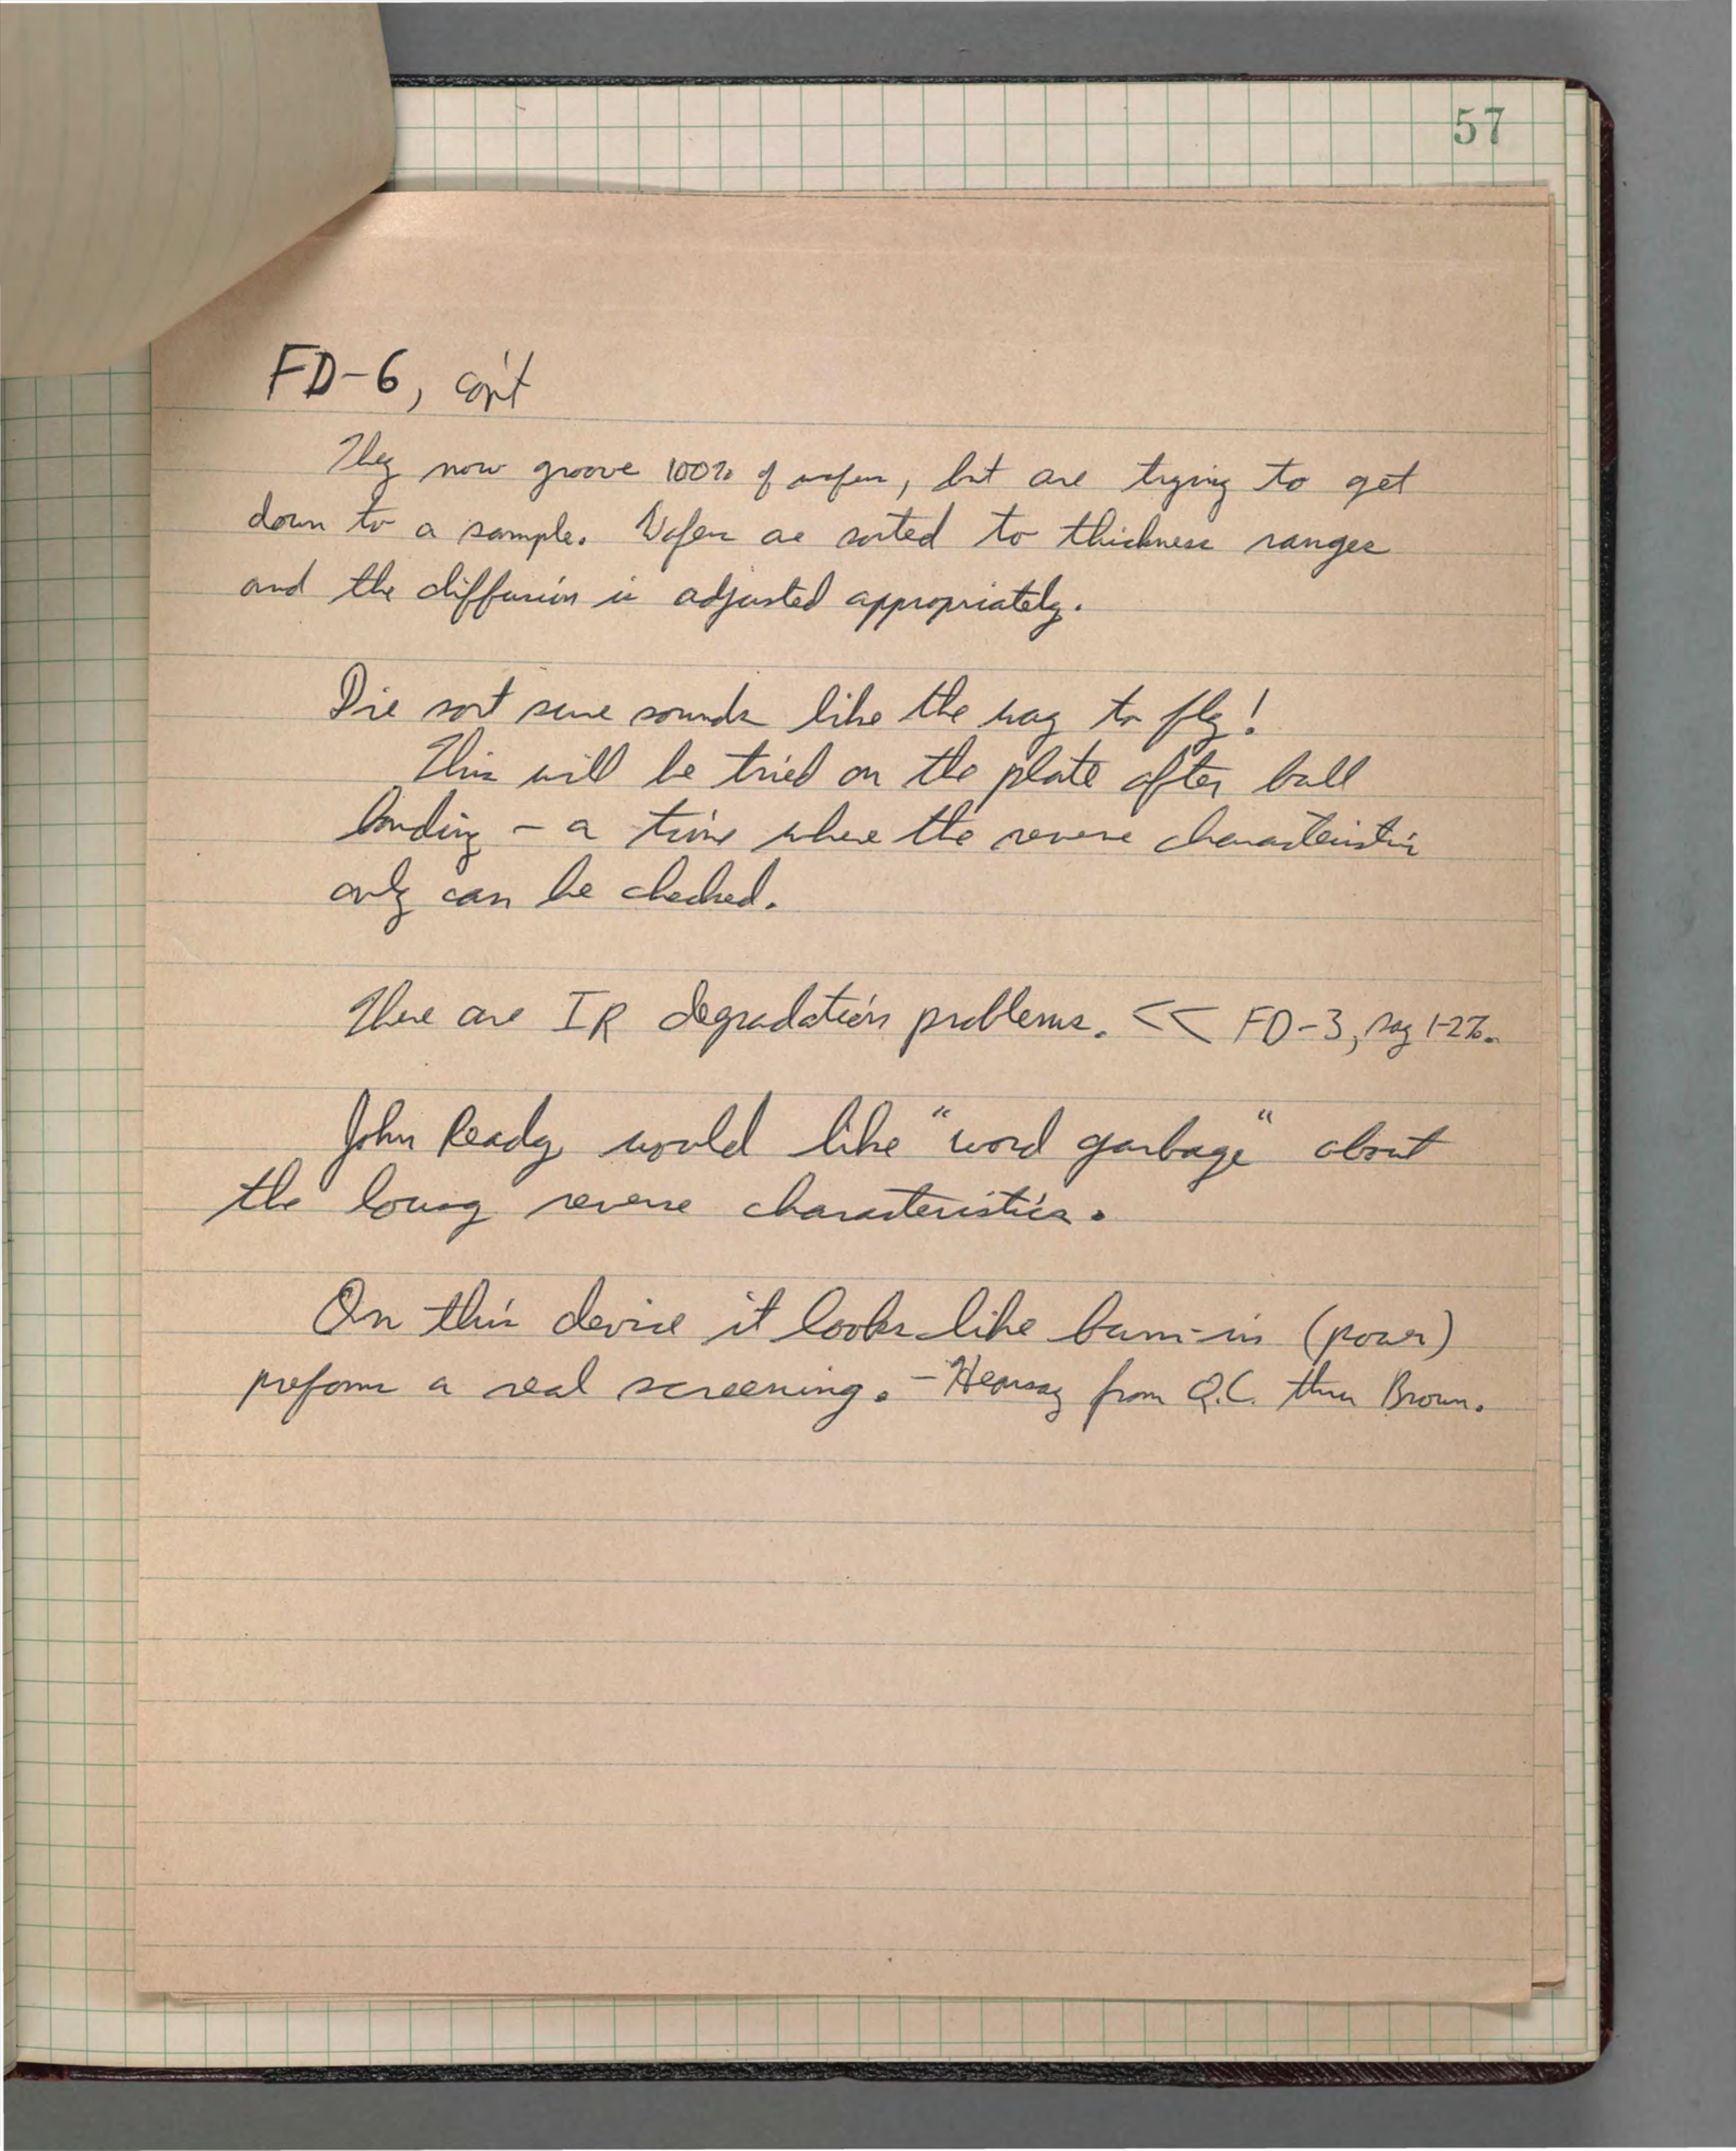 57
FD-6, con't
They now groove 100% of wafers, but are trying to get
down to a sample. Wafers are sorted to thickness ranges
and the diffusion is adjusted appropriately.
Die sort sure sounds like the way to fly!
This will be tried on the plate after ball
bonding - a time where the reverse characteristic
only can be checked.
There are IR degradation problems. << FD-3, say 1-2%.
John Ready would like "word garbage" about
the lousy reverse characteristics.
On this device it looks like burn-in (power)
preforms a real screening. - Hearsay from Q.C. thru Brown.